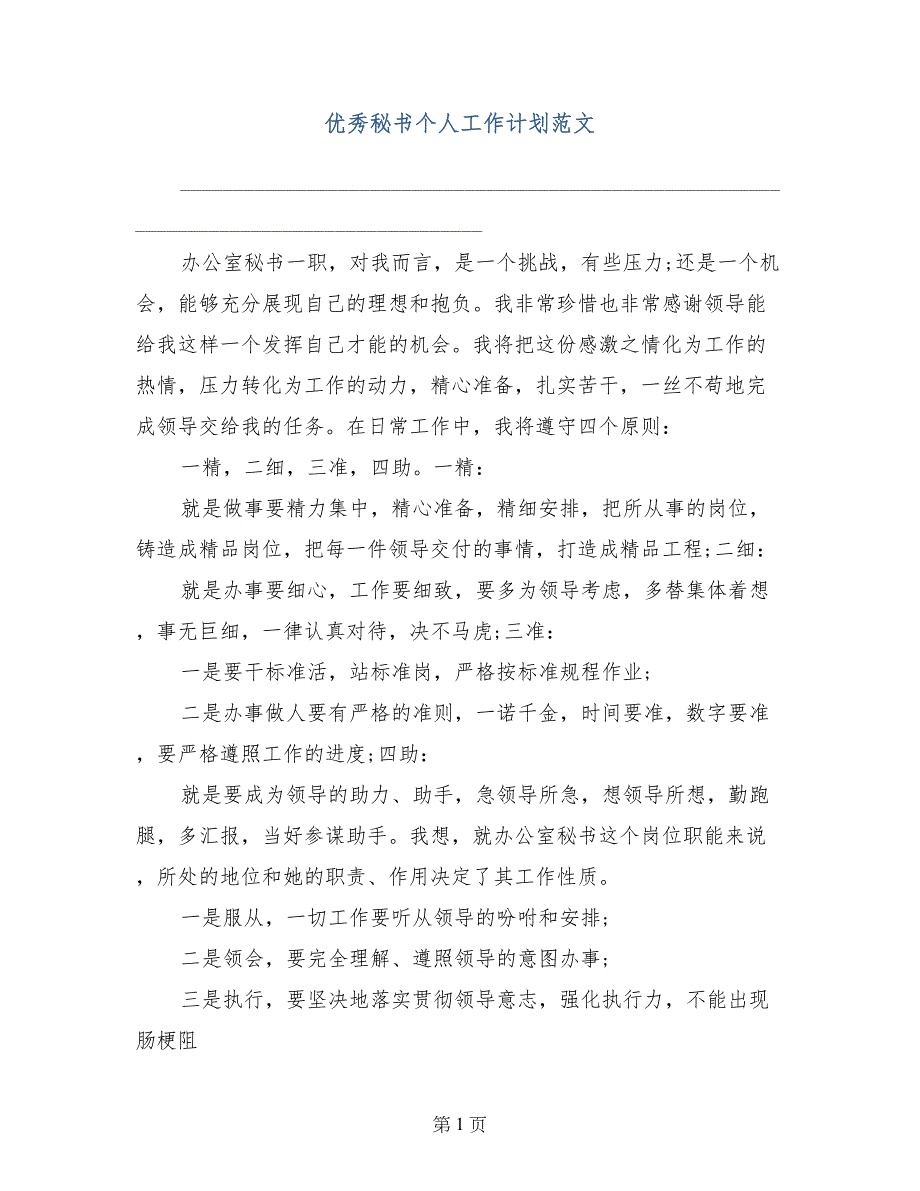 优秀秘书个人工作计划范文
____________________________________________________________
___________________________________
办公室秘书一职，对我而言，是一个挑战，有些压力;还是一个机
会，能够充分展现自己的理想和抱负。我非常珍惜也非常感谢领导能
给我这样一个发挥自己才能的机会。我将把这份感激之情化为工作的
热情，压力转化为工作的动力，精心准备，扎实苦干，一丝不苟地完
成领导交给我的任务。在日常工作中，我将遵守四个原则：
一精，二细，三准，四助。一精：
就是做事要精力集中，精心准备，精细安排，把所从事的岗位，
铸造成精品岗位，把每一件领导交付的事情，打造成精品工程;二细：
就是办事要细心，工作要细致，要多为领导考虑，多替集体着想
，事无巨细，一律认真对待，决不马虎;三准：
一是要干标准活，站标准岗，严格按标准规程作业;
二是办事做人要有严格的准则，一诺千金，时间要准，数字要准
，要严格遵照工作的进度;四助：
就是要成为领导的助力、助手，急领导所急，想领导所想，勤跑
腿，多汇报，当好参谋助手。我想，就办公室秘书这个岗位职能来说
，所处的地位和她的职责、作用决定了其工作性质。
一是服从，一切工作要听从领导的吩咐和安排;
二是领会，要完全理解、遵照领导的意图办事;
三是执行，要坚决地落实贯彻领导意志，强化执行力，不能出现
肠梗阻
第 1 页